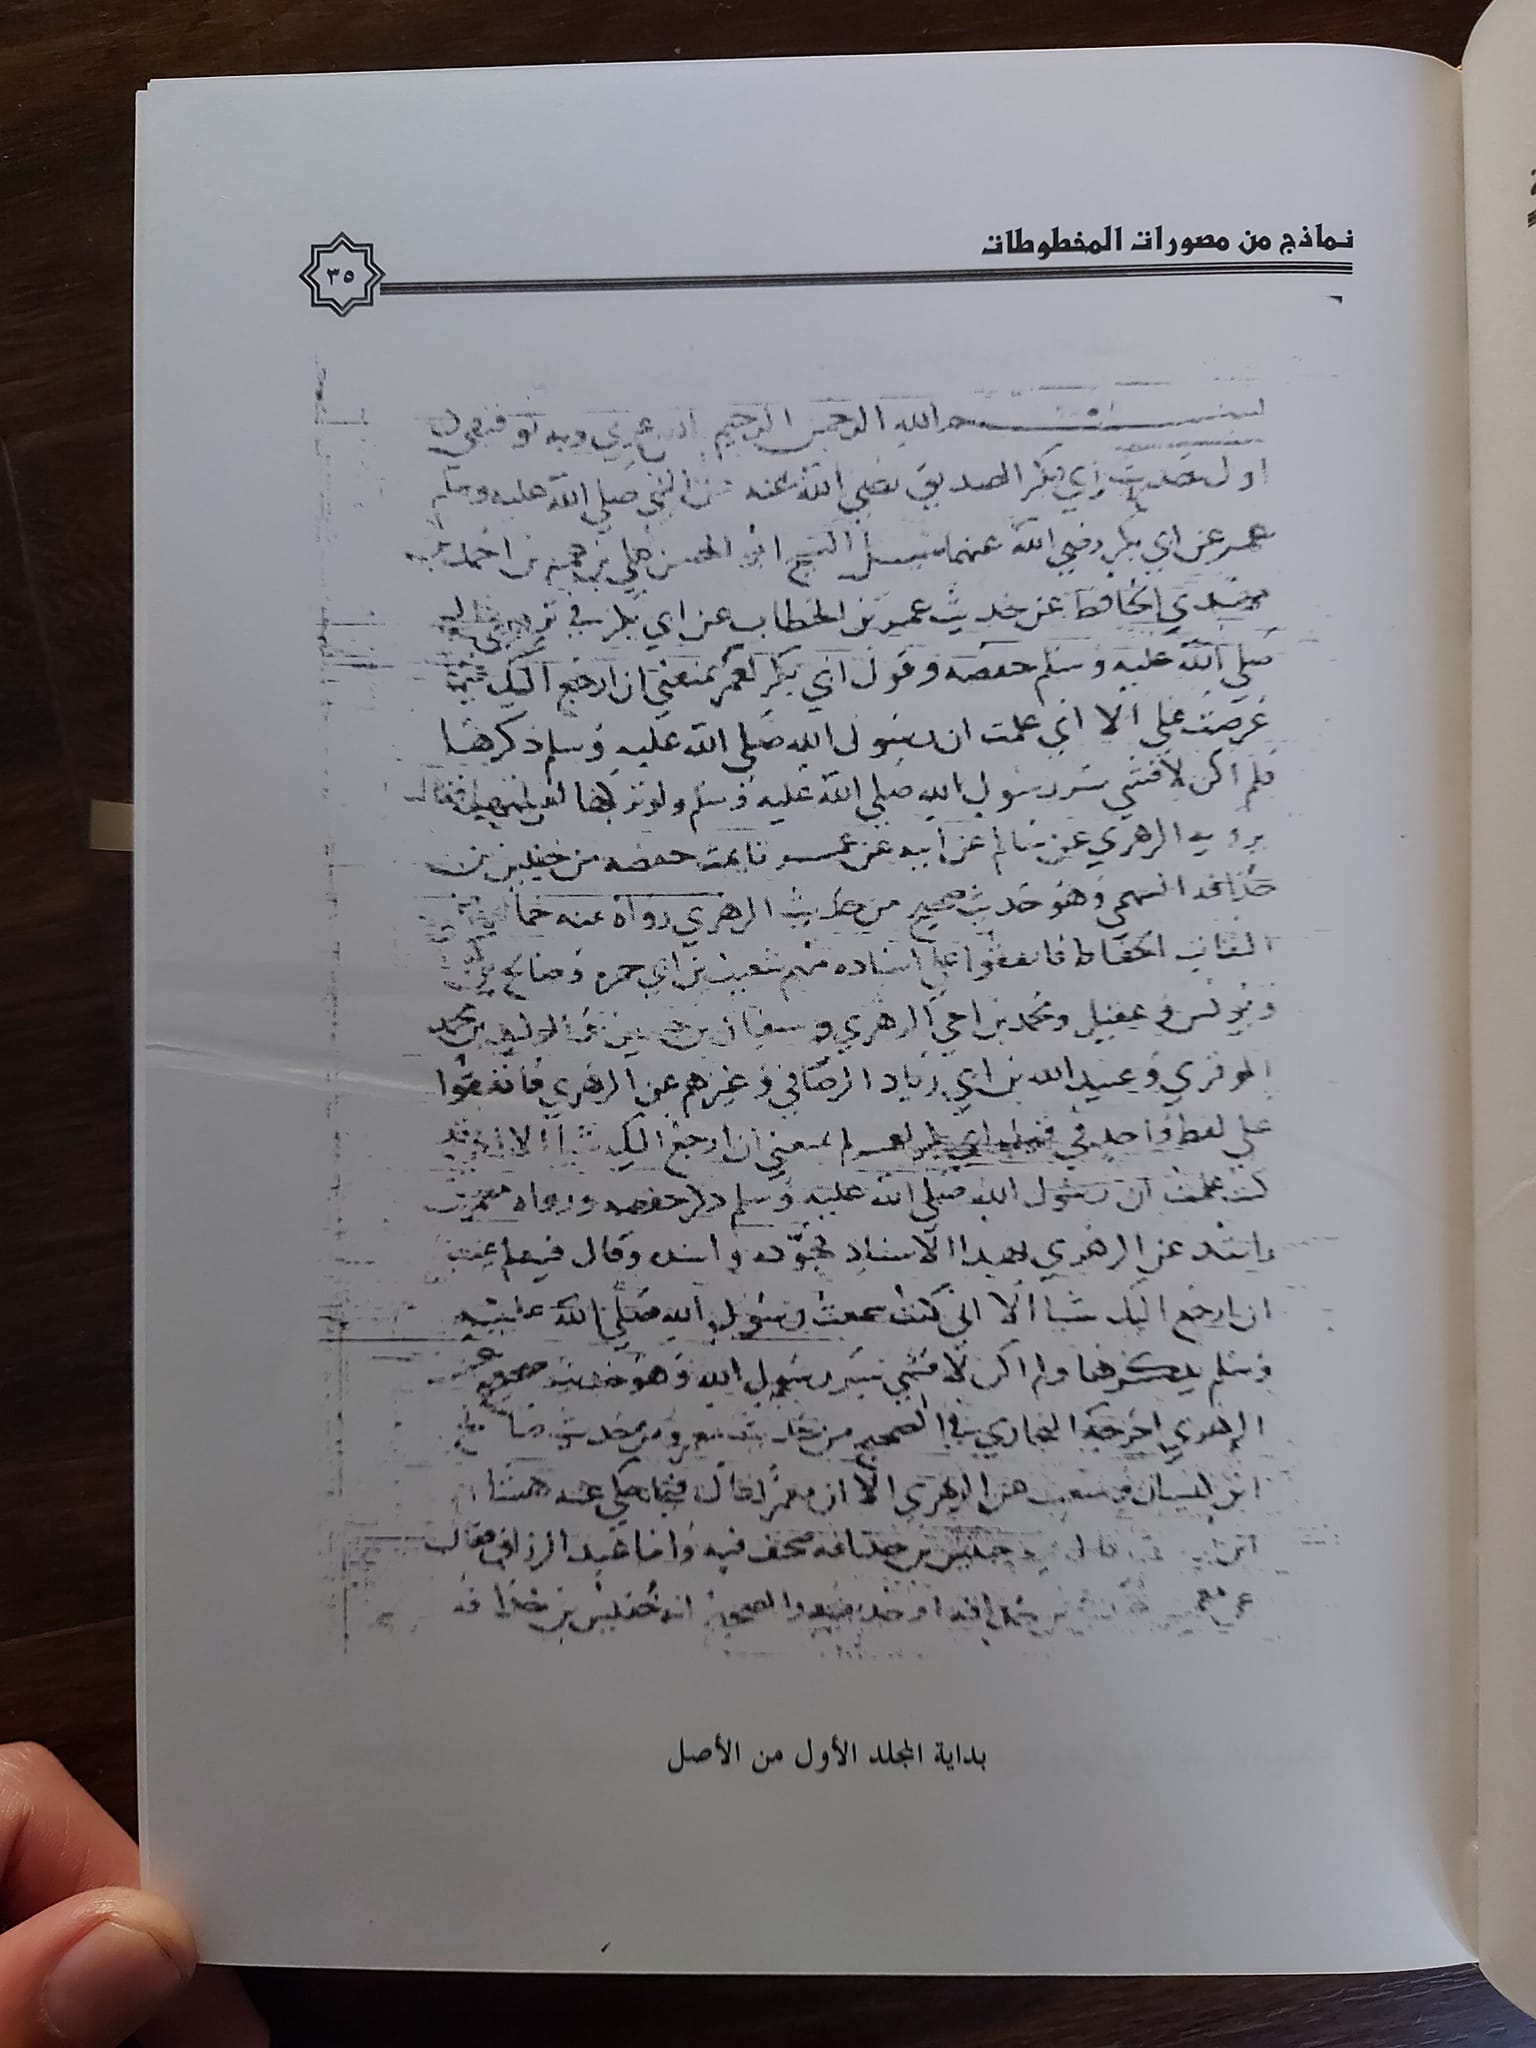 نماذج من مصورات المخطوطات
٣٥
بسم الله الرحمن الرحيم وبه توفيقي
اول حديث ابي بكر الصديق رضي الله عنه عن النبي صلى الله عليه وسلم
عمر عن ابي بكر رضي الله عنهما سئل الشيخ ابو الحسن علي بن عمر بن احمد بن
مهدي الحافظ عن حديث عمر بن الخطاب عن ابي بكر في تزويج النبي
صلى الله عليه وسلم حفصه وقول ابي بكر لعمر لم يمنعني ان ارجع اليك فيما
عرضت علي الا اني علمت ان رسول الله صلى الله عليه وسلم ذكرها
فلم اكن لافشي سر رسول الله صلى الله عليه وسلم ولو تركها فقال
يرويه الزهري عن سالم عن ابيه عن عمر تايمت حفصه من خنيس بن
حذافه السهمي وهو حديث صحيح من حديث الزهري رواه عنه جماعة من
الثقات الحفاظ فاتفقوا على اسناده منهم شعيب بن ابي حمزه وصالح بن كيسان
ويونس وعقيل ومحمد بن اخي الزهري وسفيان بن حسين والوليد بن محمد
الموقري وعبيد الله بن ابي زياد الرصافي وغيرهم عن الزهري فاتفقوا
على لفظ واحد في قول ابي بكر لعمر لم يمنعني ان ارجع اليك شيا الا اني
كنت علمت ان رسول الله صلى الله عليه وسلم ذكر حفصه ورواه معمر بن
راشد عن الزهري بهذا الاسناد فجوده واسنده وقال فيه لم يمنعني
ان ارجع اليك شيا الا اني كنت سمعت رسول الله صلى الله عليه
وسلم يذكرها ولم اكن لافشي سر رسول الله وهو حديث صحيح عن
الزهري اخرجه البخاري في الصحيح من حديث معمر ومن حديث صالح
ابن كيسان وشعيب عن الزهري الا ان معمرا قال فيما حكى عنه هشام
قال حبيش بن حذافه صحف فيه واما عبد الرزاق فقال
عن معمر بن حذافه او حذيفه والصحيح انه خنيس بن حذافه
بداية المجلد الأول من الأصل